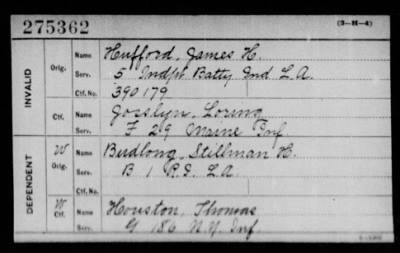 275362 (3-H-4)
INVALID
Orig.
Name Hufford, James H.
Serv. 5 Indpt Batty Ind L.A.
Ctf. No. 390179
Ctf.
Name Joselyn, Loring
Serv. F 29 Maine Inf
DEPENDENT
W Orig.
Name Budlong, Stillman H.
Serv. B 1 R.I. L.A.
Ctf. No.
W Ctf.
Name Houston, Thomas
Serv. G 186 N.Y. Inf